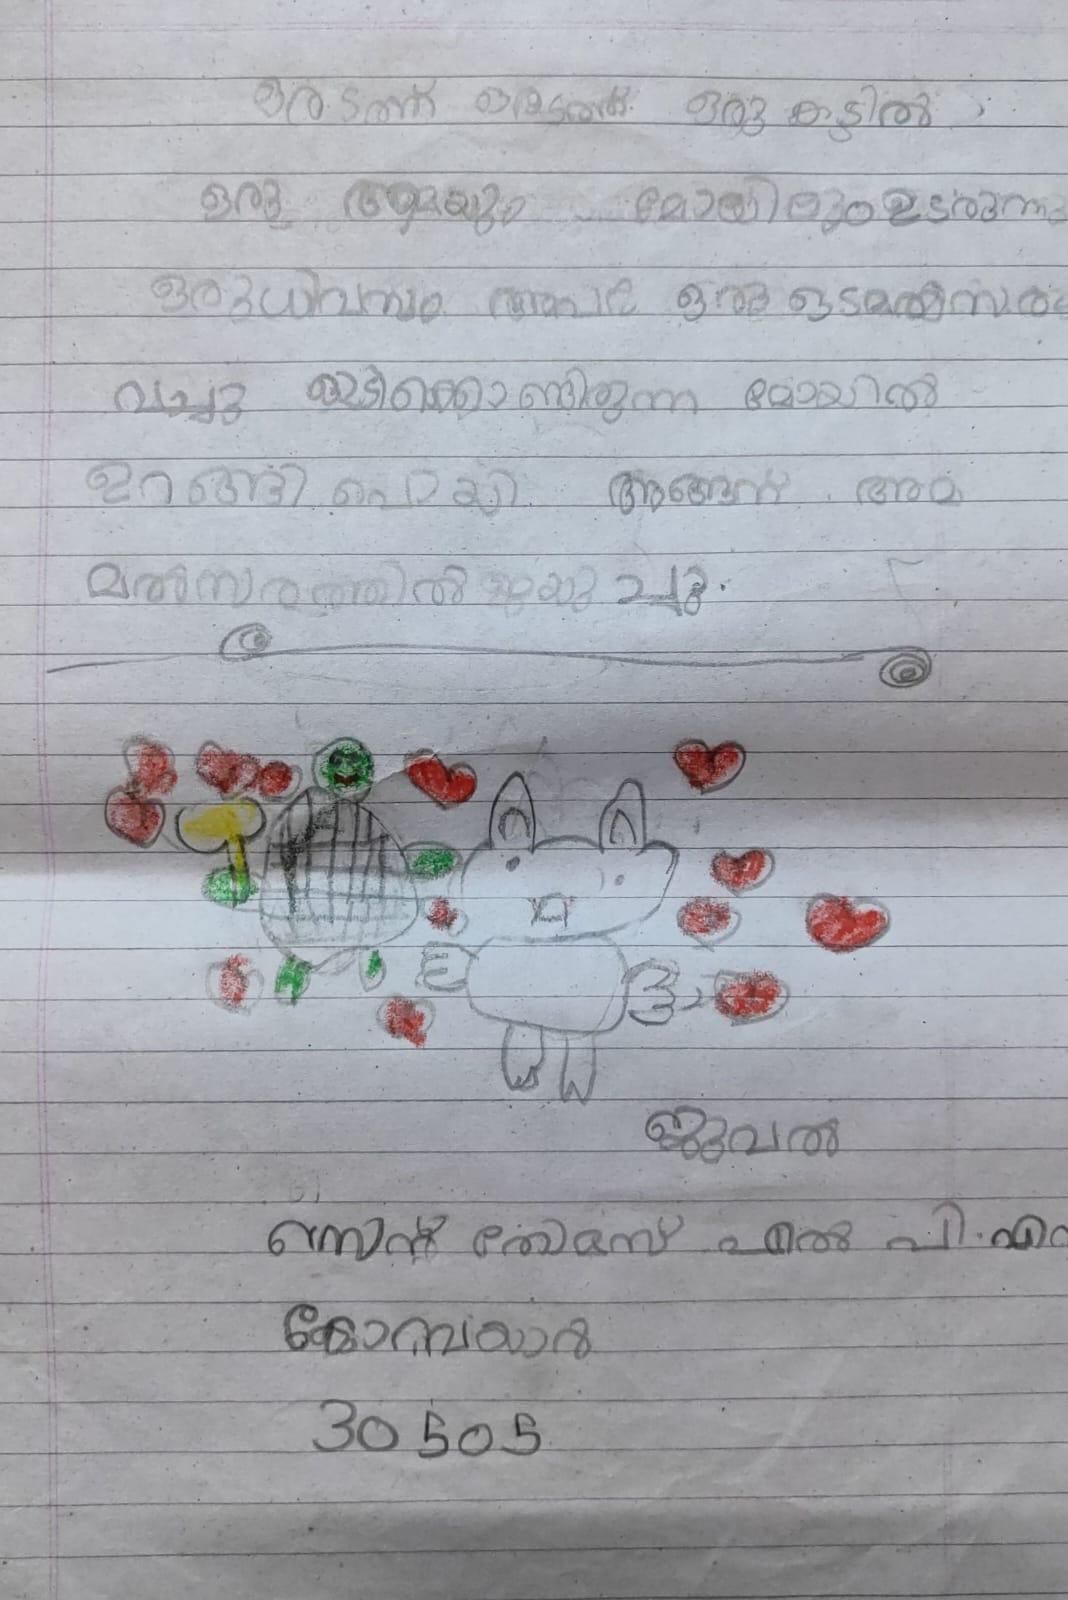 ഒരുടത്ത് ഒരുടത്ത് ഒരു കാട്ടിൽ
ഒരു ആമയും മോയിലും ഉടരുന്നു
ഒരുധിവസം അവർ ഒരു ഒടമത്സരം
വച്ചു ഒടികൊണ്ടിരുന്ന മോയിൽ
ഉറങ്ങി പൊയി അങ്ങനെ അമ
മൽസരത്തിൽ ജയിച്ചു.
ജുവൽ
സെന്റ് തോമസ് എൽ പി.എസ
കോമ്പയാർ
30505